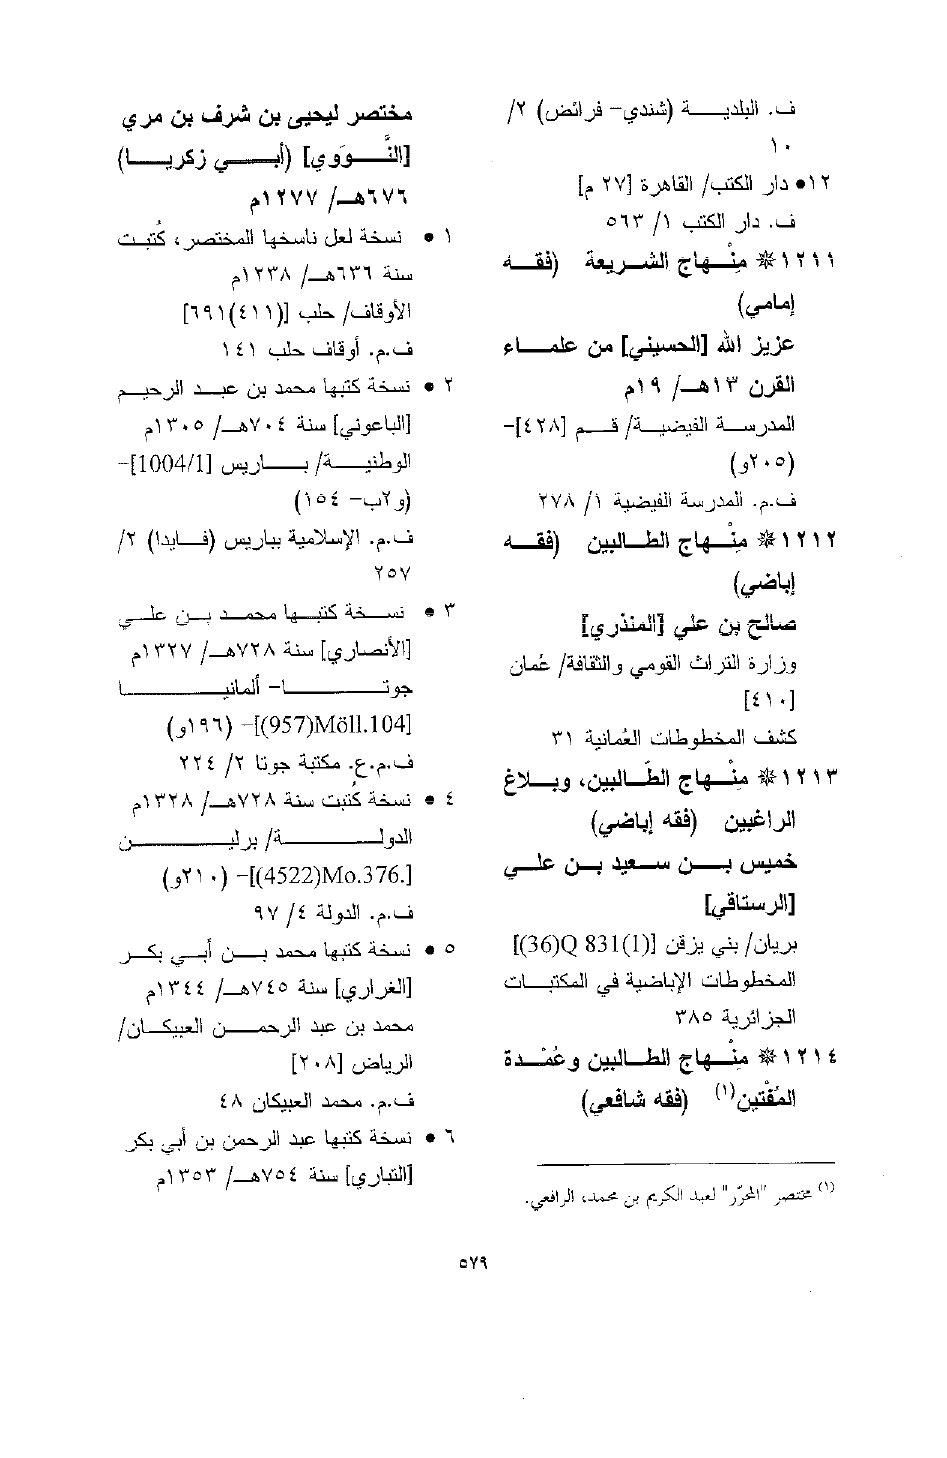 ف. البلدية (شندي- فرائض) ٢/
١٠
١٢● دار الكتب/ القاهرة [٢٧ م]
ف. دار الكتب ١/ ٥٦٣
١٢١١* مِنْهاج الشريعة (فقه
إمامي)
عزيز الله [الحسيني] من علماء
القرن ١٣هـ/ ١٩م
المدرسة الفيضية/ قم [٤٢٨]-
(٢٠٥و)
ف.م. المدرسة الفيضية ١/ ٢٧٨
١٢١٢* مِنْهاج الطالبين (فقه
إباضي)
صالح بن علي [المنذري]
وزارة التراث القومي والثقافة/ عُمان
[٤١٠]
كشف المخطوطات العُمانية ٣١
١٢١٣* مِنْهاج الطّالبين، وبلاغ
الراغبين (فقه إباضي)
خميس بن سعيد بن علي
[الرستاقي]
بريان/ بني يزقن [(36)Q 831(1)]
المخطوطات الإباضية في المكتبات
الجزائرية ٣٨٥
١٢١٤* مِنْهاج الطالبين وعُمْدة
المُفْتين(١) (فقه شافعي)
(١) مختصر "المحرّر" لعبد الكريم بن محمد، الرافعي.
مختصر ليحيى بن شرف بن مري
[النَّووي] (أبي زكريا)
٦٧٦هـ/ ١٢٧٧م
١ ● نسخة لعل ناسخها المختصر، كُتبت
سنة ٦٣٦هـ/ ١٢٣٨م
الأوقاف/ حلب [(٤١١)٦٩١]
ف.م. أوقاف حلب ١٤١
٢ ● نسخة كتبها محمد بن عبد الرحيم
[الباعوني] سنة ٧٠٤هـ/ ١٣٠٥م
الوطنية/ باريس [1004/1]-
(و٢ب- ١٥٤)
ف.م. الإسلامية بباريس (فايدا) ٢/
٢٥٧
٣ ● نسخة كتبها محمد بن علي
[الأنصاري] سنة ٧٢٨هـ/ ١٣٢٧م
جوتا- ألمانيا
[(957)Möll.104]- (١٩٦و)
ف.م.ع. مكتبة جوتا ٢/ ٢٢٤
٤ ● نسخة كُتبت سنة ٧٢٨هـ/ ١٣٢٨م
الدولة/ برلين
[(4522)Mo.376.]- (٢١٠و)
ف.م. الدولة ٤/ ٩٧
٥ ● نسخة كتبها محمد بن أبي بكر
[الغراري] سنة ٧٤٥هـ/ ١٣٤٤م
محمد بن عبد الرحمن العبيكان/
الرياض [٢٠٨]
ف.م. محمد العبيكان ٤٨
٦ ● نسخة كتبها عبد الرحمن بن أبي بكر
[التباري] سنة ٧٥٤هـ/ ١٣٥٣م
٥٧٩